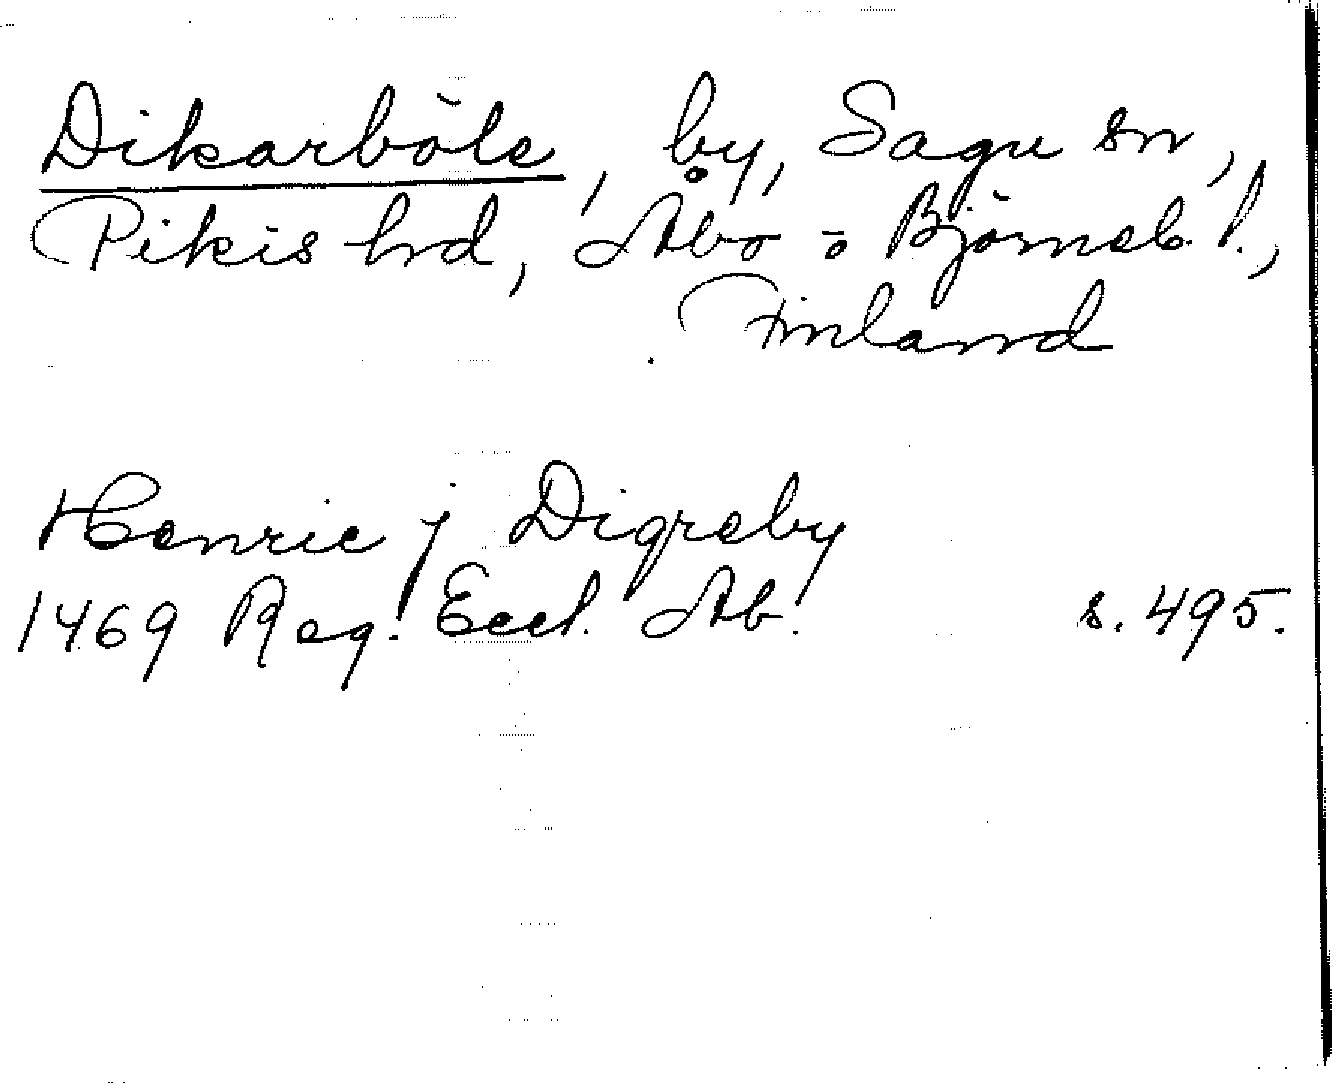 Dikarböle, by, Sagu sn,
Pikis hd, Åbo o Björneb. l.,
Finland
Henric j Digreby
1469 Reg. Eccl. Ab. s. 495.